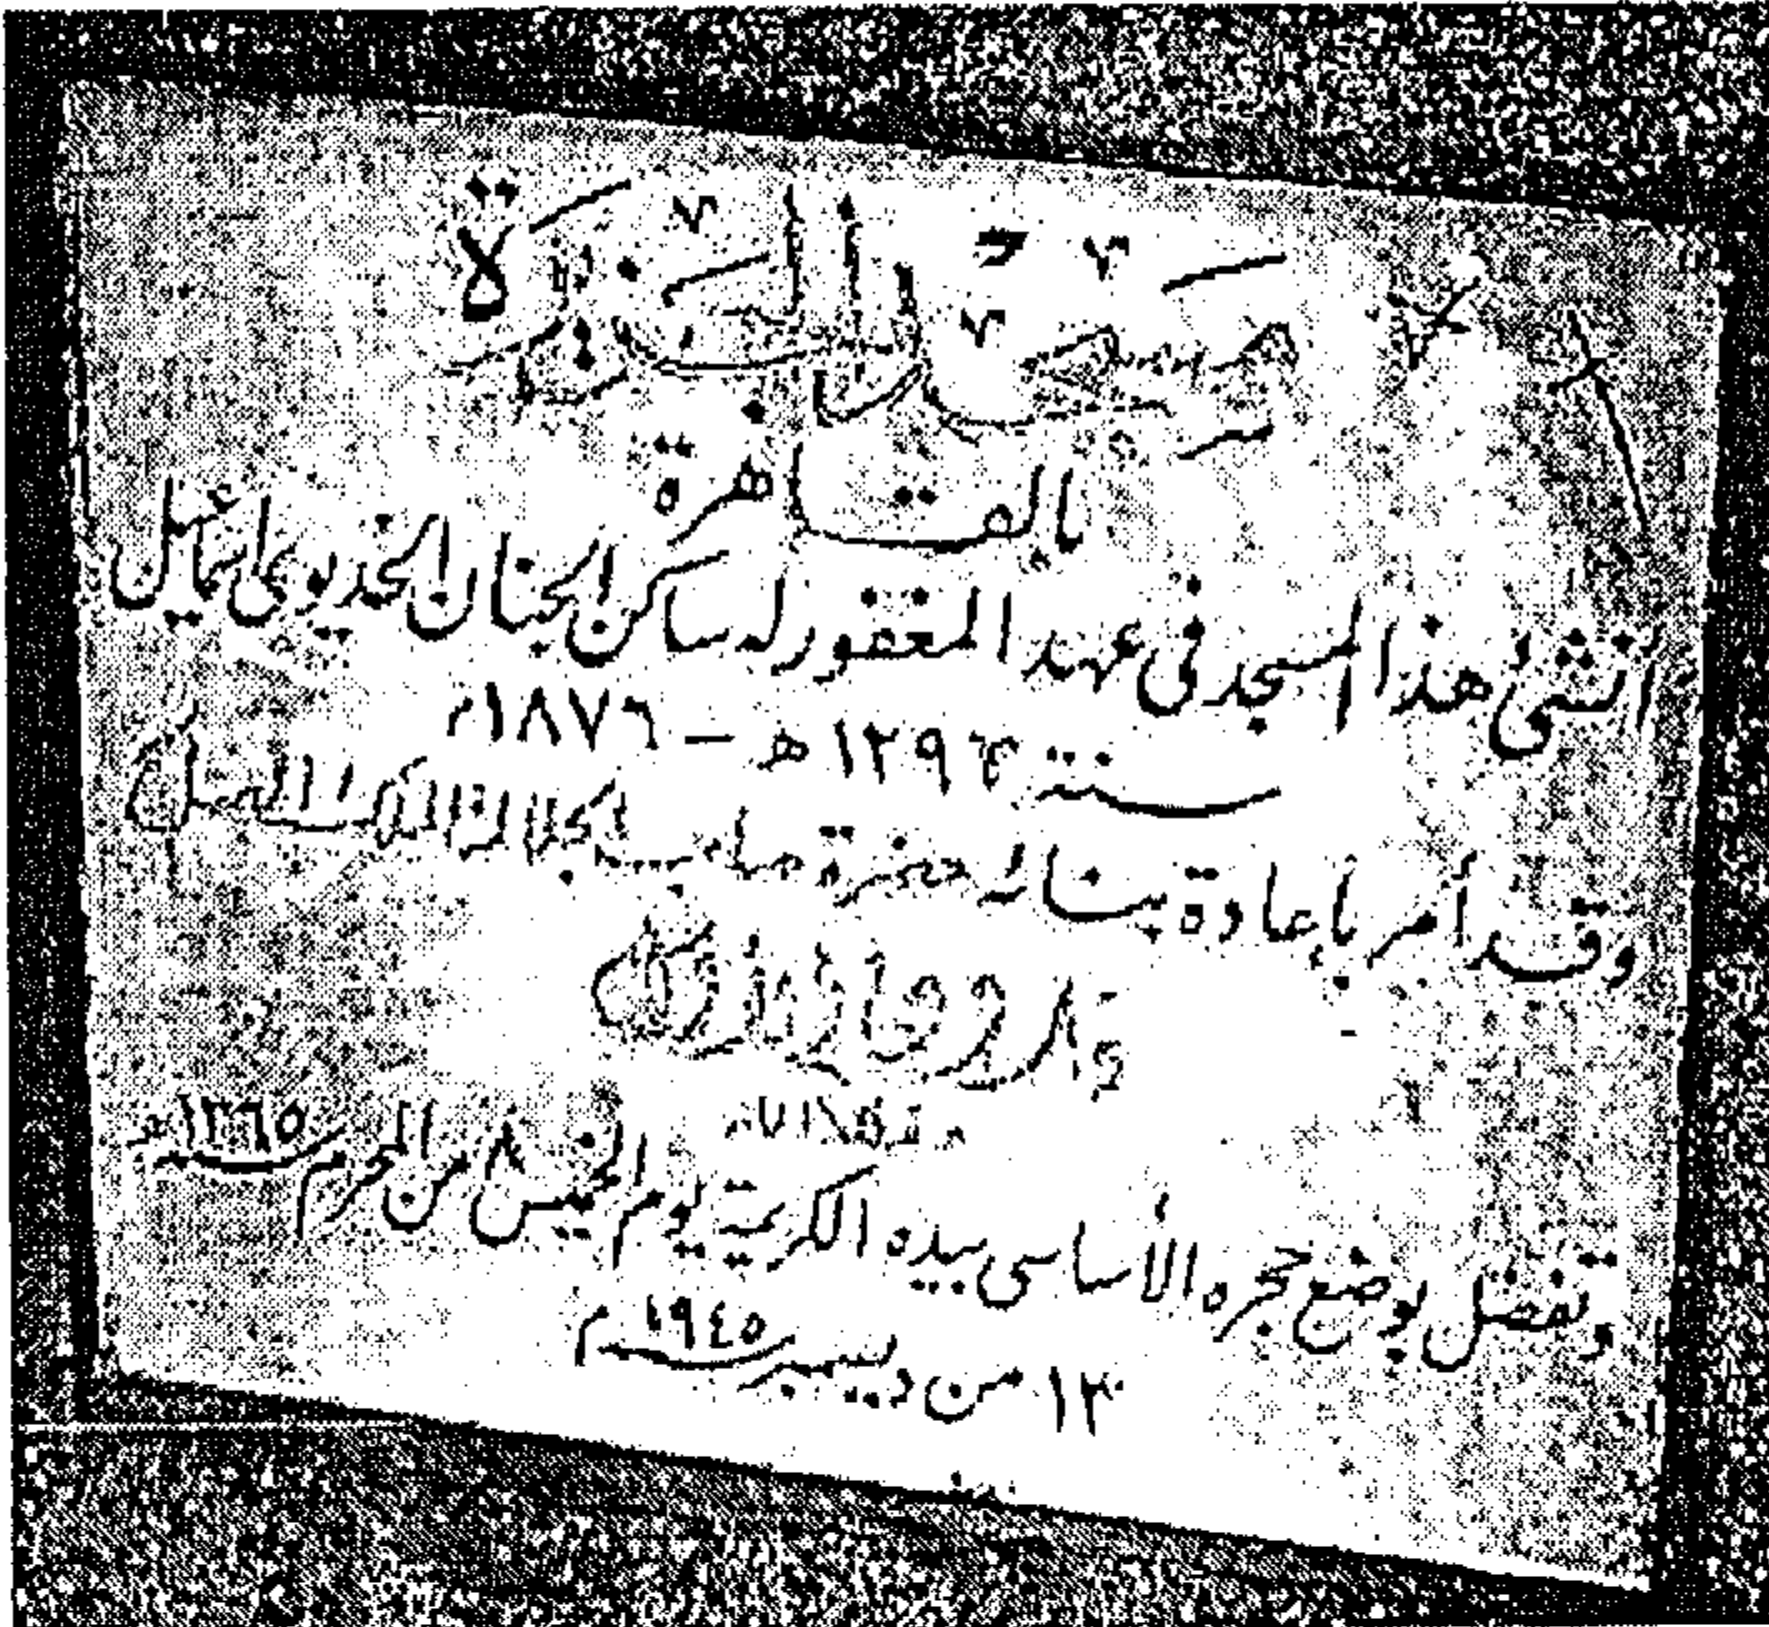 مسجد الجزيرة
بالقاهرة
أنشئ هذا المسجد فى عهد المغفور له ساكن الجنان الخديوى اسماعيل
سنة ١٢٩٣ هـ - ١٨٧٦ م
وقد أمر بإعادة بنائه حضرة صاحب الجلالة الملك
فاروق الأول
وتفضل بوضع حجره الأساسى بيده الكريمة يوم الخميس ٨ من المحرم سنة ١٣٦٥ هـ
١٣ من ديسمبر سنة ١٩٤٥ م